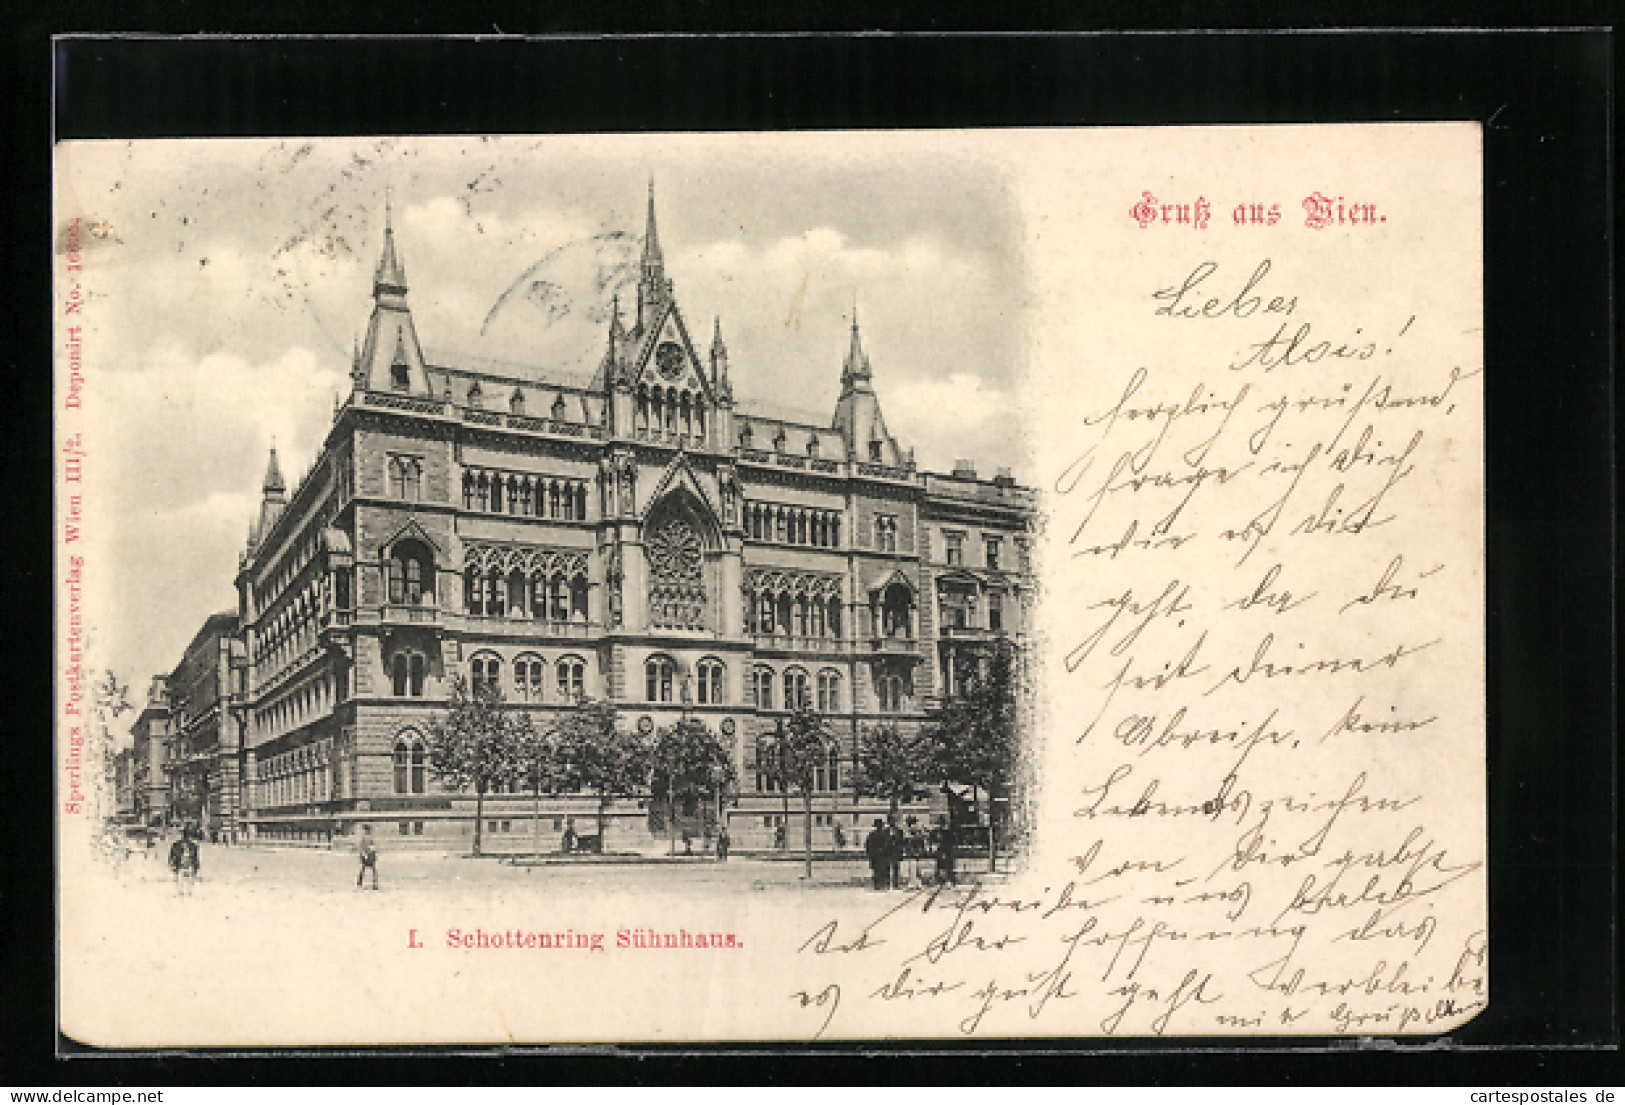 Gruß aus Wien.
Lieber
Alois!
herzlich grüßend,
frage ich Dich
wie es Dir
geht, da Du
seit Deiner
Abreise, kein
Lebenszeichen
von Dir gabst
Schreibe uns bald
In der Hoffnung das
es Dir gut geht Verbleibe
mit Grüßen
I. Schottenring Sühnhaus.
Sperlings Postkartenverlag Wien III/2. Deponirt No.
cartespostales de